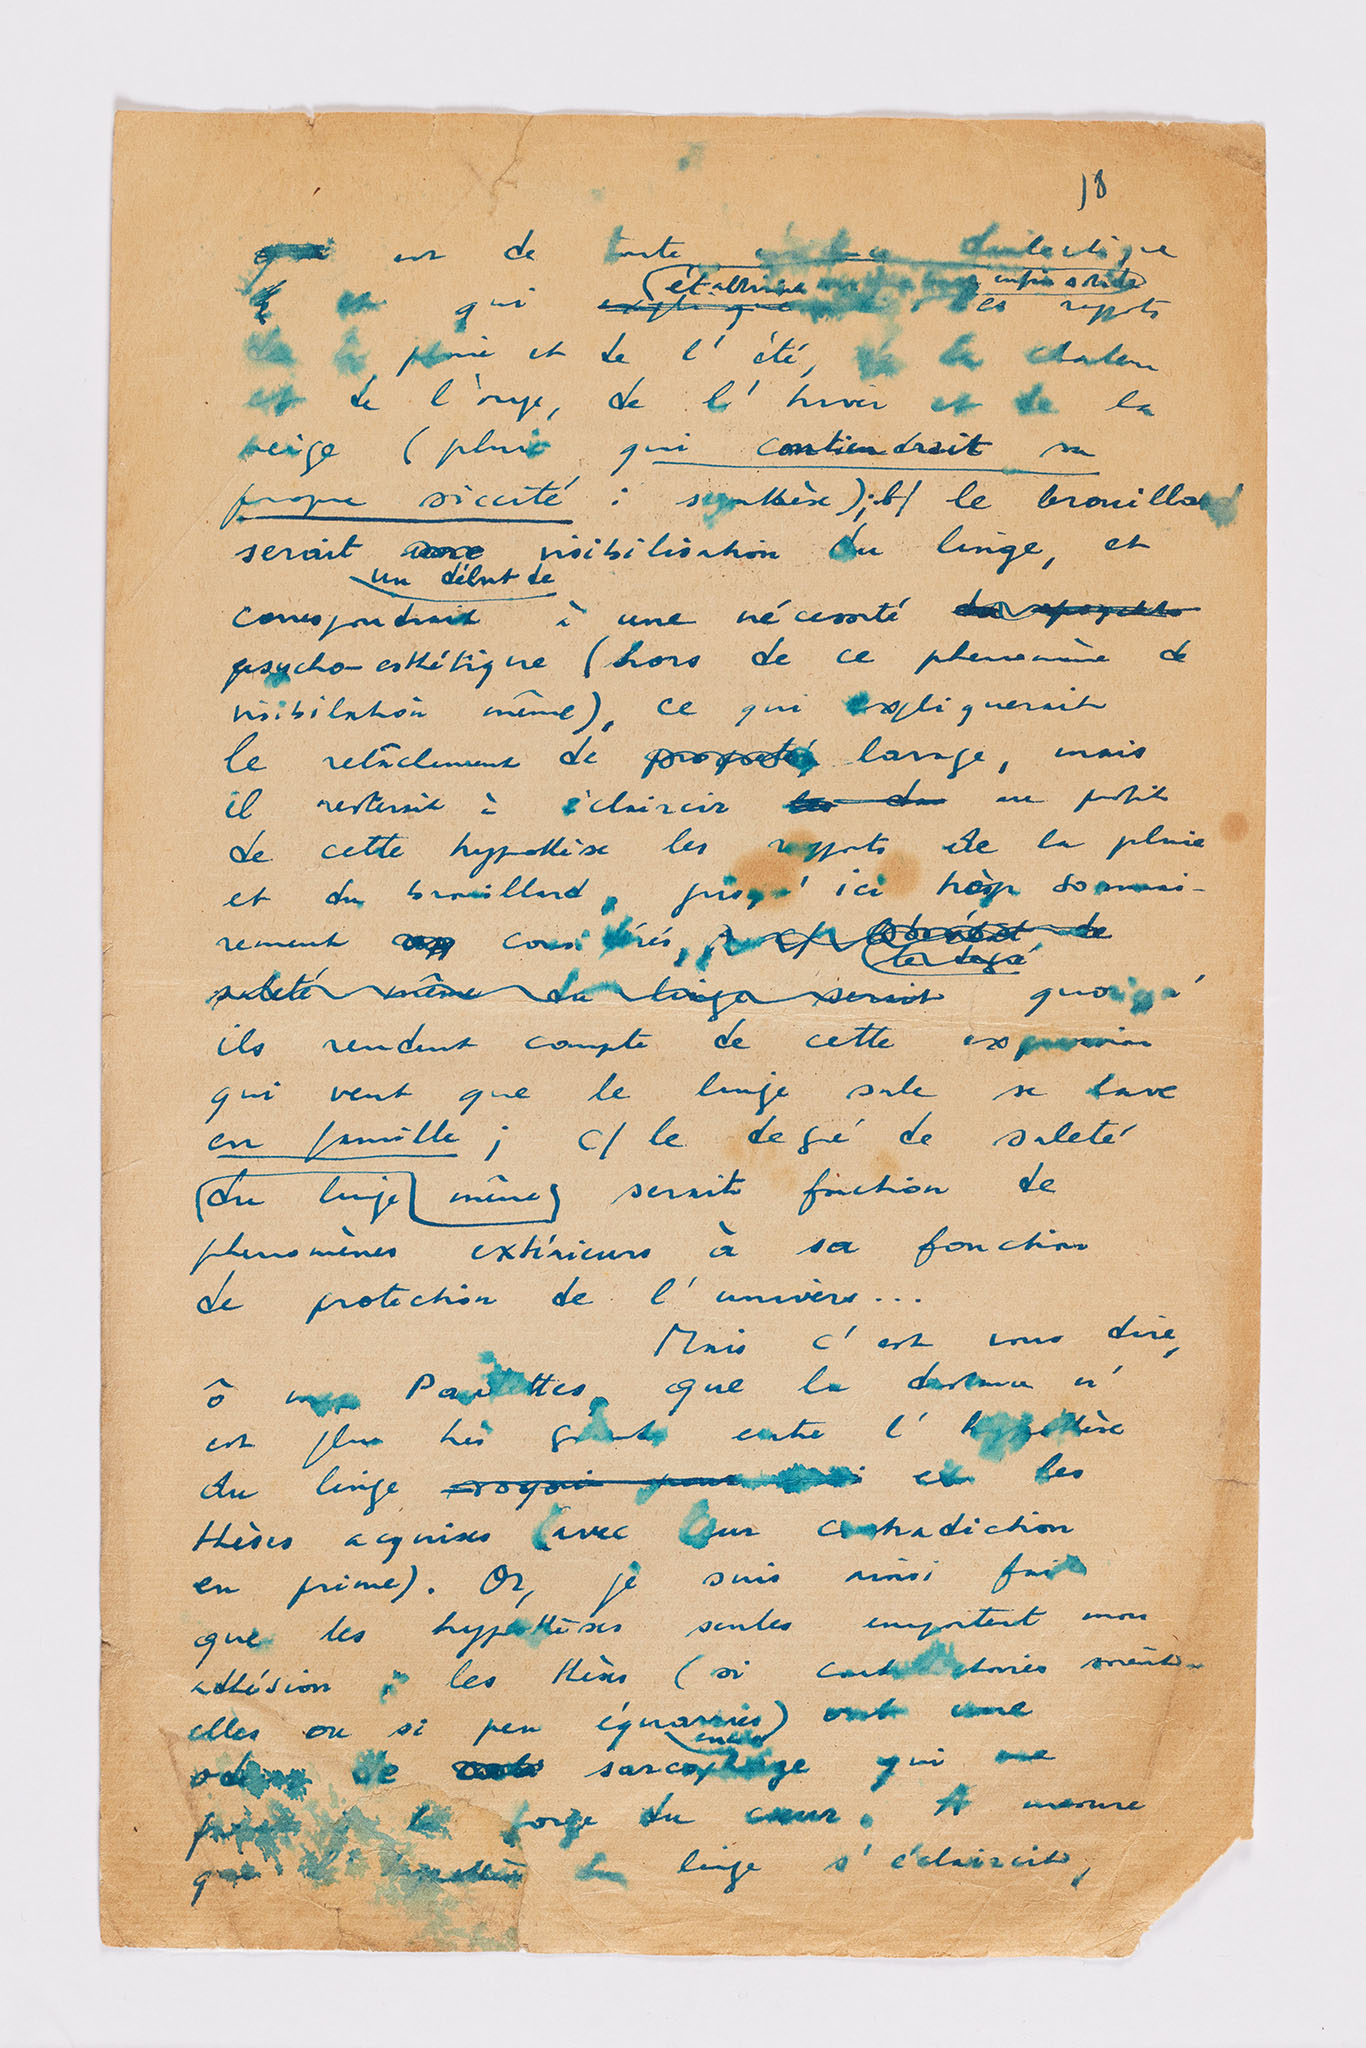 18
est de toute dialectique
établirait enfin solide
qui rapports
pluie et de l'été, de la chaleur
et de l'orage, de l'hiver et de la
neige (pluie qui contiendrait sa
propre siccité : synthèse); b/ le brouillard
serait visibilisation du linge, et
un début de
correspondrait à une nécessité
psycho-esthétique (hors de ce phenomène de
visibilation même), ce qui expliquerait
le relâchement de propreté lavage, mais
il resterait à éclaircir au profit
de cette hypothèse les rapports de la pluie
et du brouillard, jusqu'ici trop sommai-
rement considérés, c/ de
le degré
saleté même du linge serait quoiqu'
ils rendent compte de cette expression
qui veut que le linge sale se lave
en famille ; c/ le degré de saleté
du linge même serait fonction de
phenomènes extérieurs à sa fonction
de protection de l'univers...
Mais c'est vous dire,
ô mes Paulettes, que la distance n'
est plus très grande entre l'hypothèse
du linge et les
thèses acquises (avec leur contradiction
en prime). Or, je suis ainsi fait
que les hypothèses seules emportent mon
adhésion & les thèses (si contradictoires soient-
elles ou si peu équarries) ont une
odeur de sarcophage qui me
la gorge du cœur. A mesure
que l'hypothèse du linge s'éclaircit,